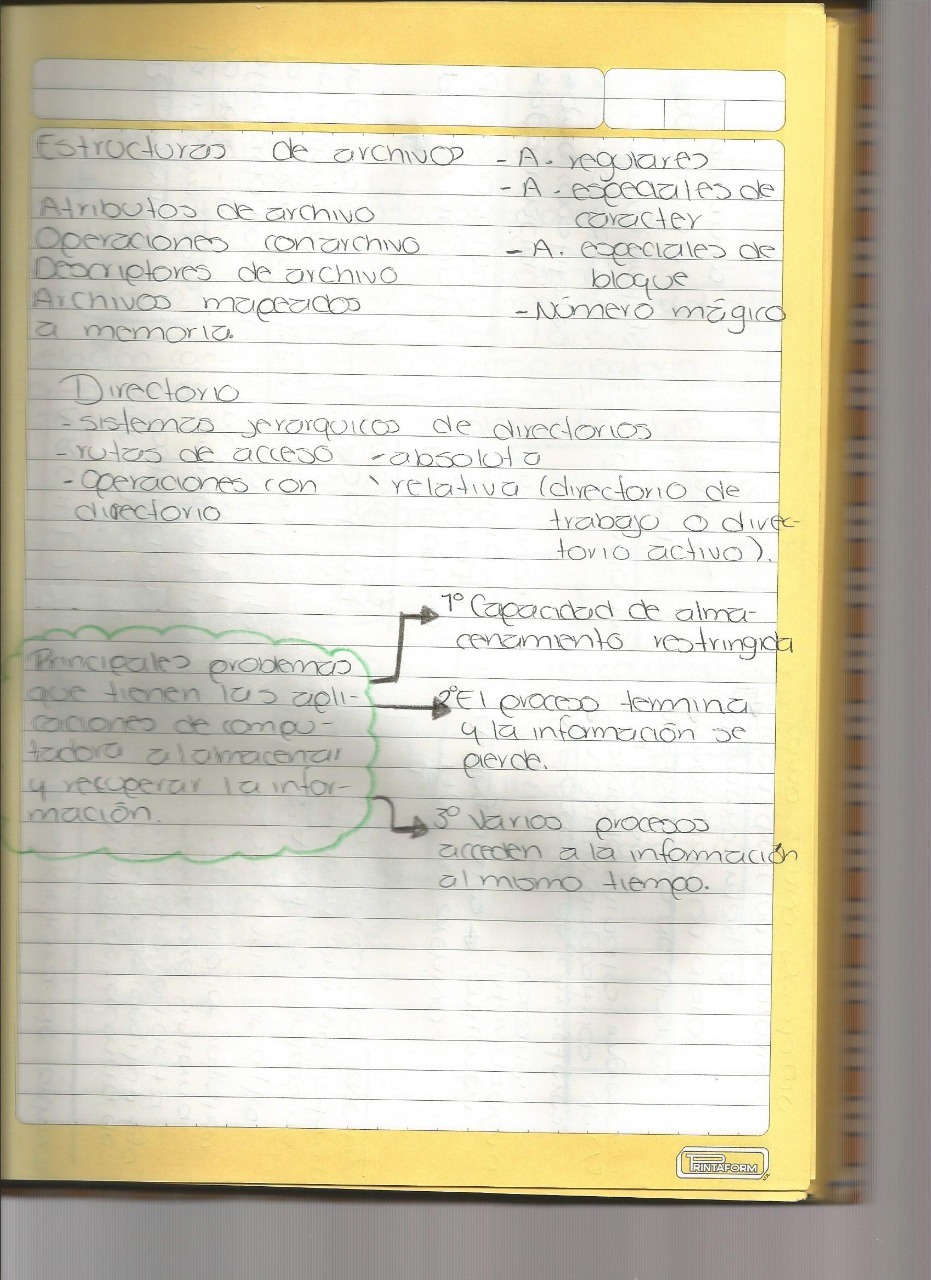 Estructuras de archivos - A. regulares
- A. especiales de
Atributos de archivo caracter
Operaciones con archivo - A. especiales de
Descriptores de archivo bloque
Archivos mapeados - Número mágico
a memoria.
Directorio
- sistemas jerarquicos de directorios
- rutas de acceso - absoluta
- Operaciones con ` relativa (directorio de
directorio trabajo o direc-
torio activo).
1º Capacidad de alma-
cenamiento restringida
Principales problemas
que tienen las apli-
caciones de compu-
tadora al almacenar
y recuperar la infor-
mación.
2º El proceso termina
y la información se
pierde.
3º Varios procesos
acceden a la información
al mismo tiempo.
PRINTAFORM